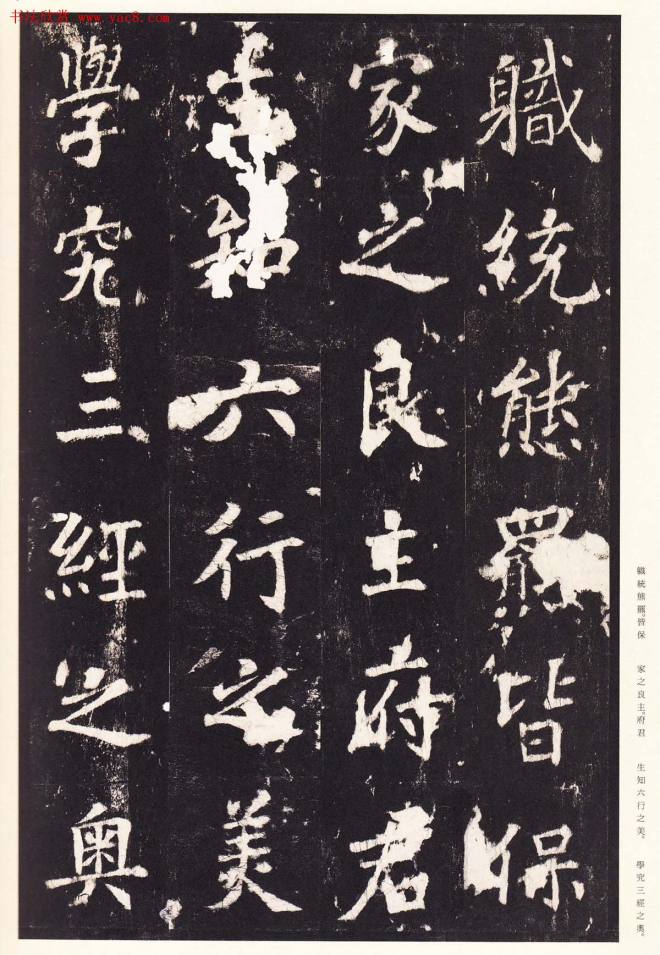 书法欣赏 www.yac8.com
職統態羆皆保
家之良主府君
生知六行之美
學究三經之奥
職統熊羆。皆保 家之良主。府君 生知六行之美。 學究三經之奥。